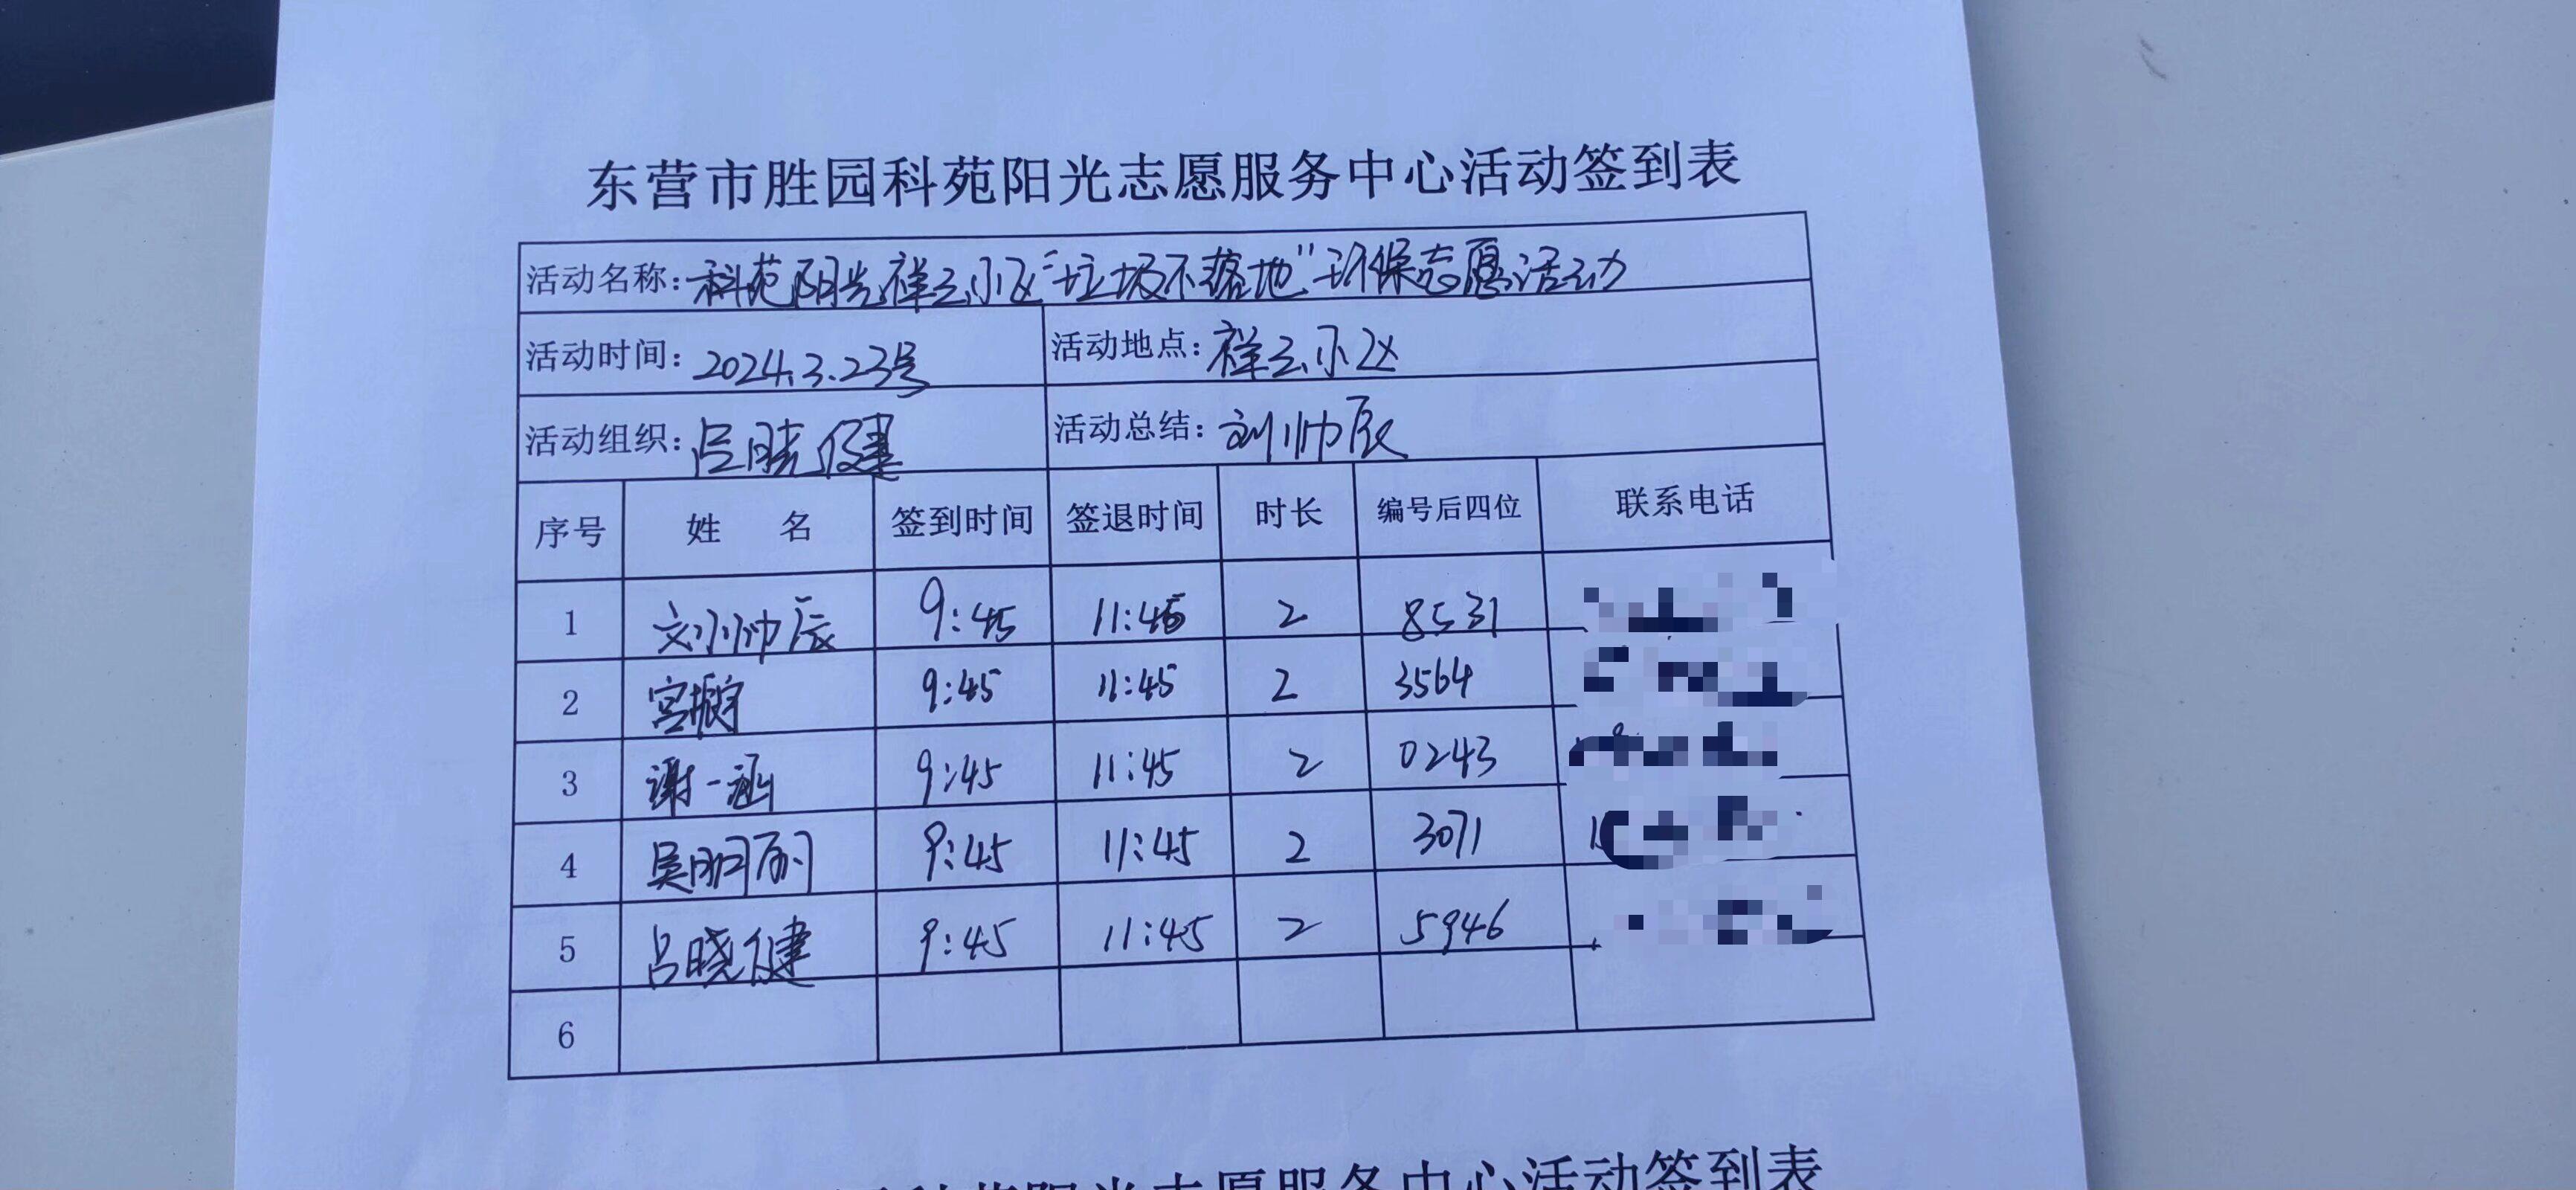 东营市胜园科苑阳光志愿服务中心活动签到表
活动名称：科苑阳光祥云小区“垃圾不落地”环保志愿活动
活动时间：2024.3.23号 活动地点：祥云小区
活动组织：吕晓健 活动总结：刘帅辰
序号 姓 名 签到时间 签退时间 时长 编号后四位 联系电话
1 刘帅辰 9:45 11:45 2 8531
2 宫振宇 9:45 11:45 2 3564
3 谢一涵 9:45 11:45 2 0243
4 吴明丽 9:45 11:45 2 3071
5 吕晓健 9:45 11:45 2 5946
6
科苑阳光志愿服务中心活动签到表